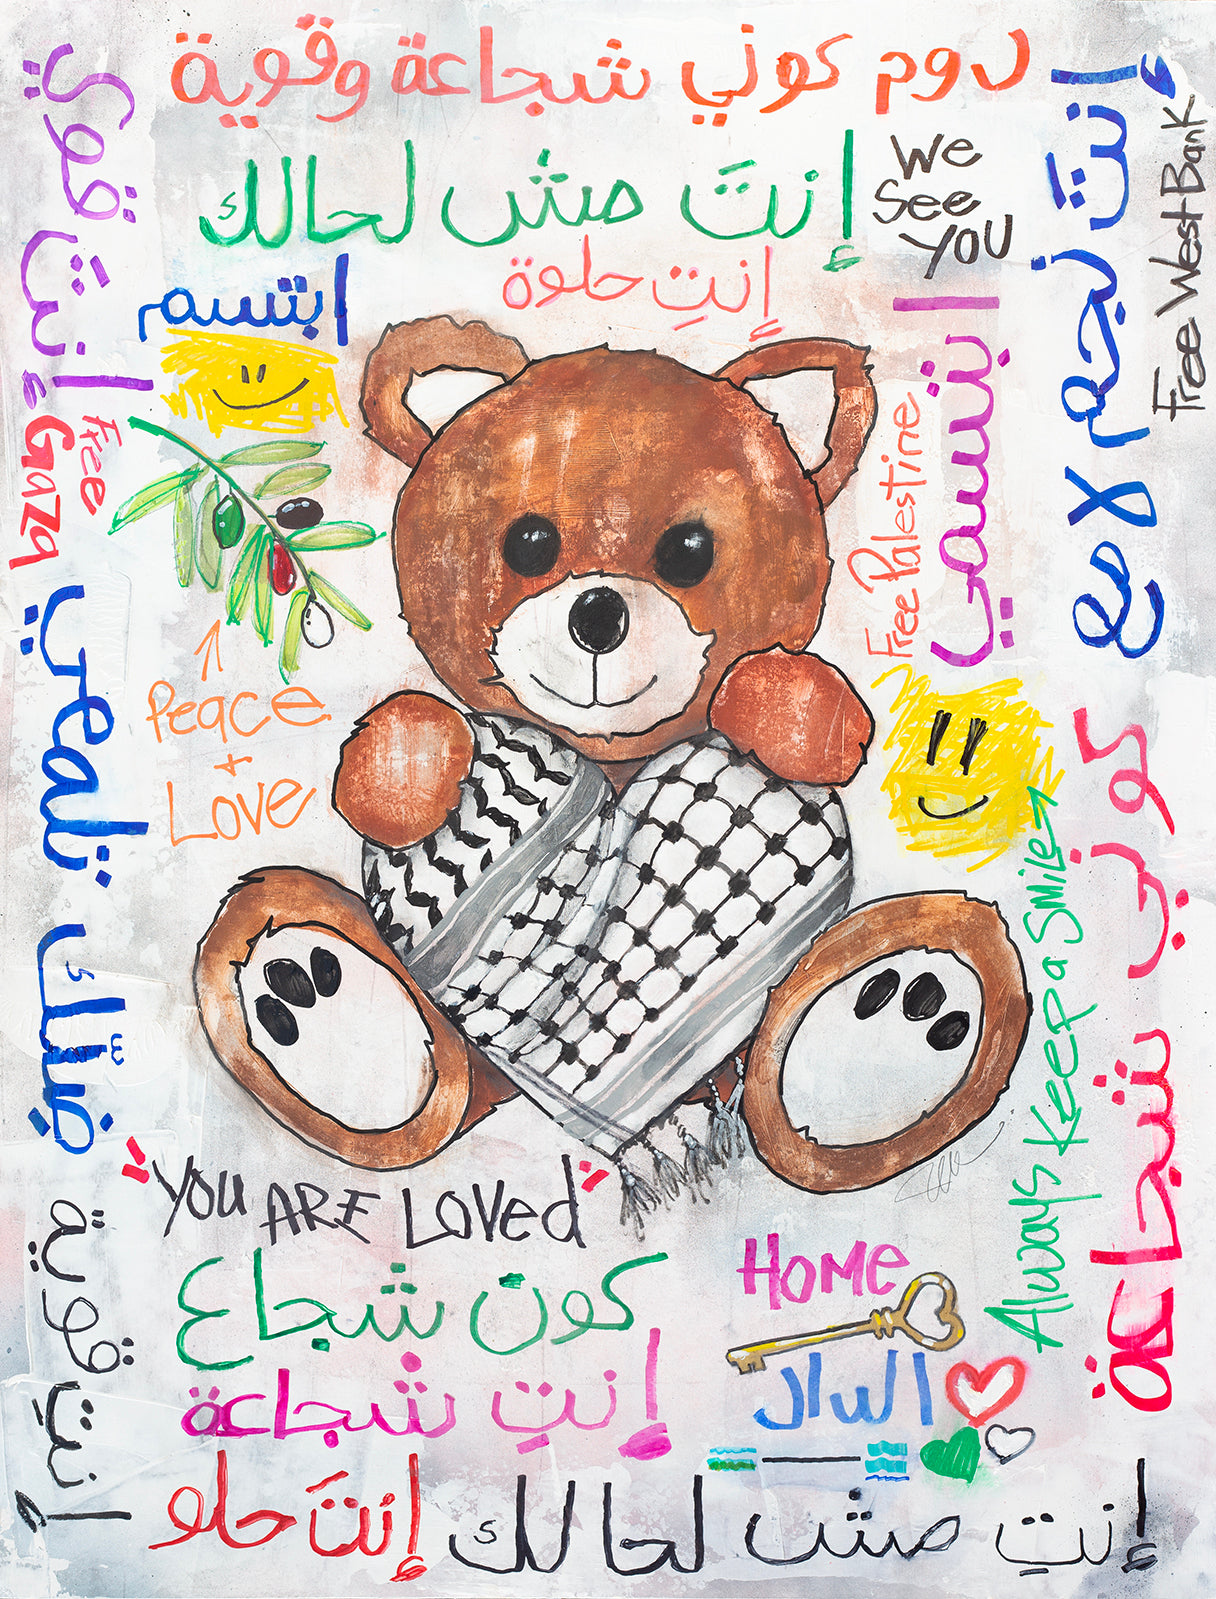 دوم كوني شجاعة وقوية
إنتَ مش لحالك
We
See
YOU
إنتِ حلوة
ابتسم
ابتسمي
إنتَ نجم لامع
Free West Bank
إنتَ قوي
Free
Gaza
Free Palestine
Peace
+
Love
Always Keep a Smile
كوني شجاعة
"YOU ARE Loved"
كون شجاع
إنتِ شجاعة
HOME
الدار
إنتَ حلو
إنتِ مش لحالك
إنتِ قوية